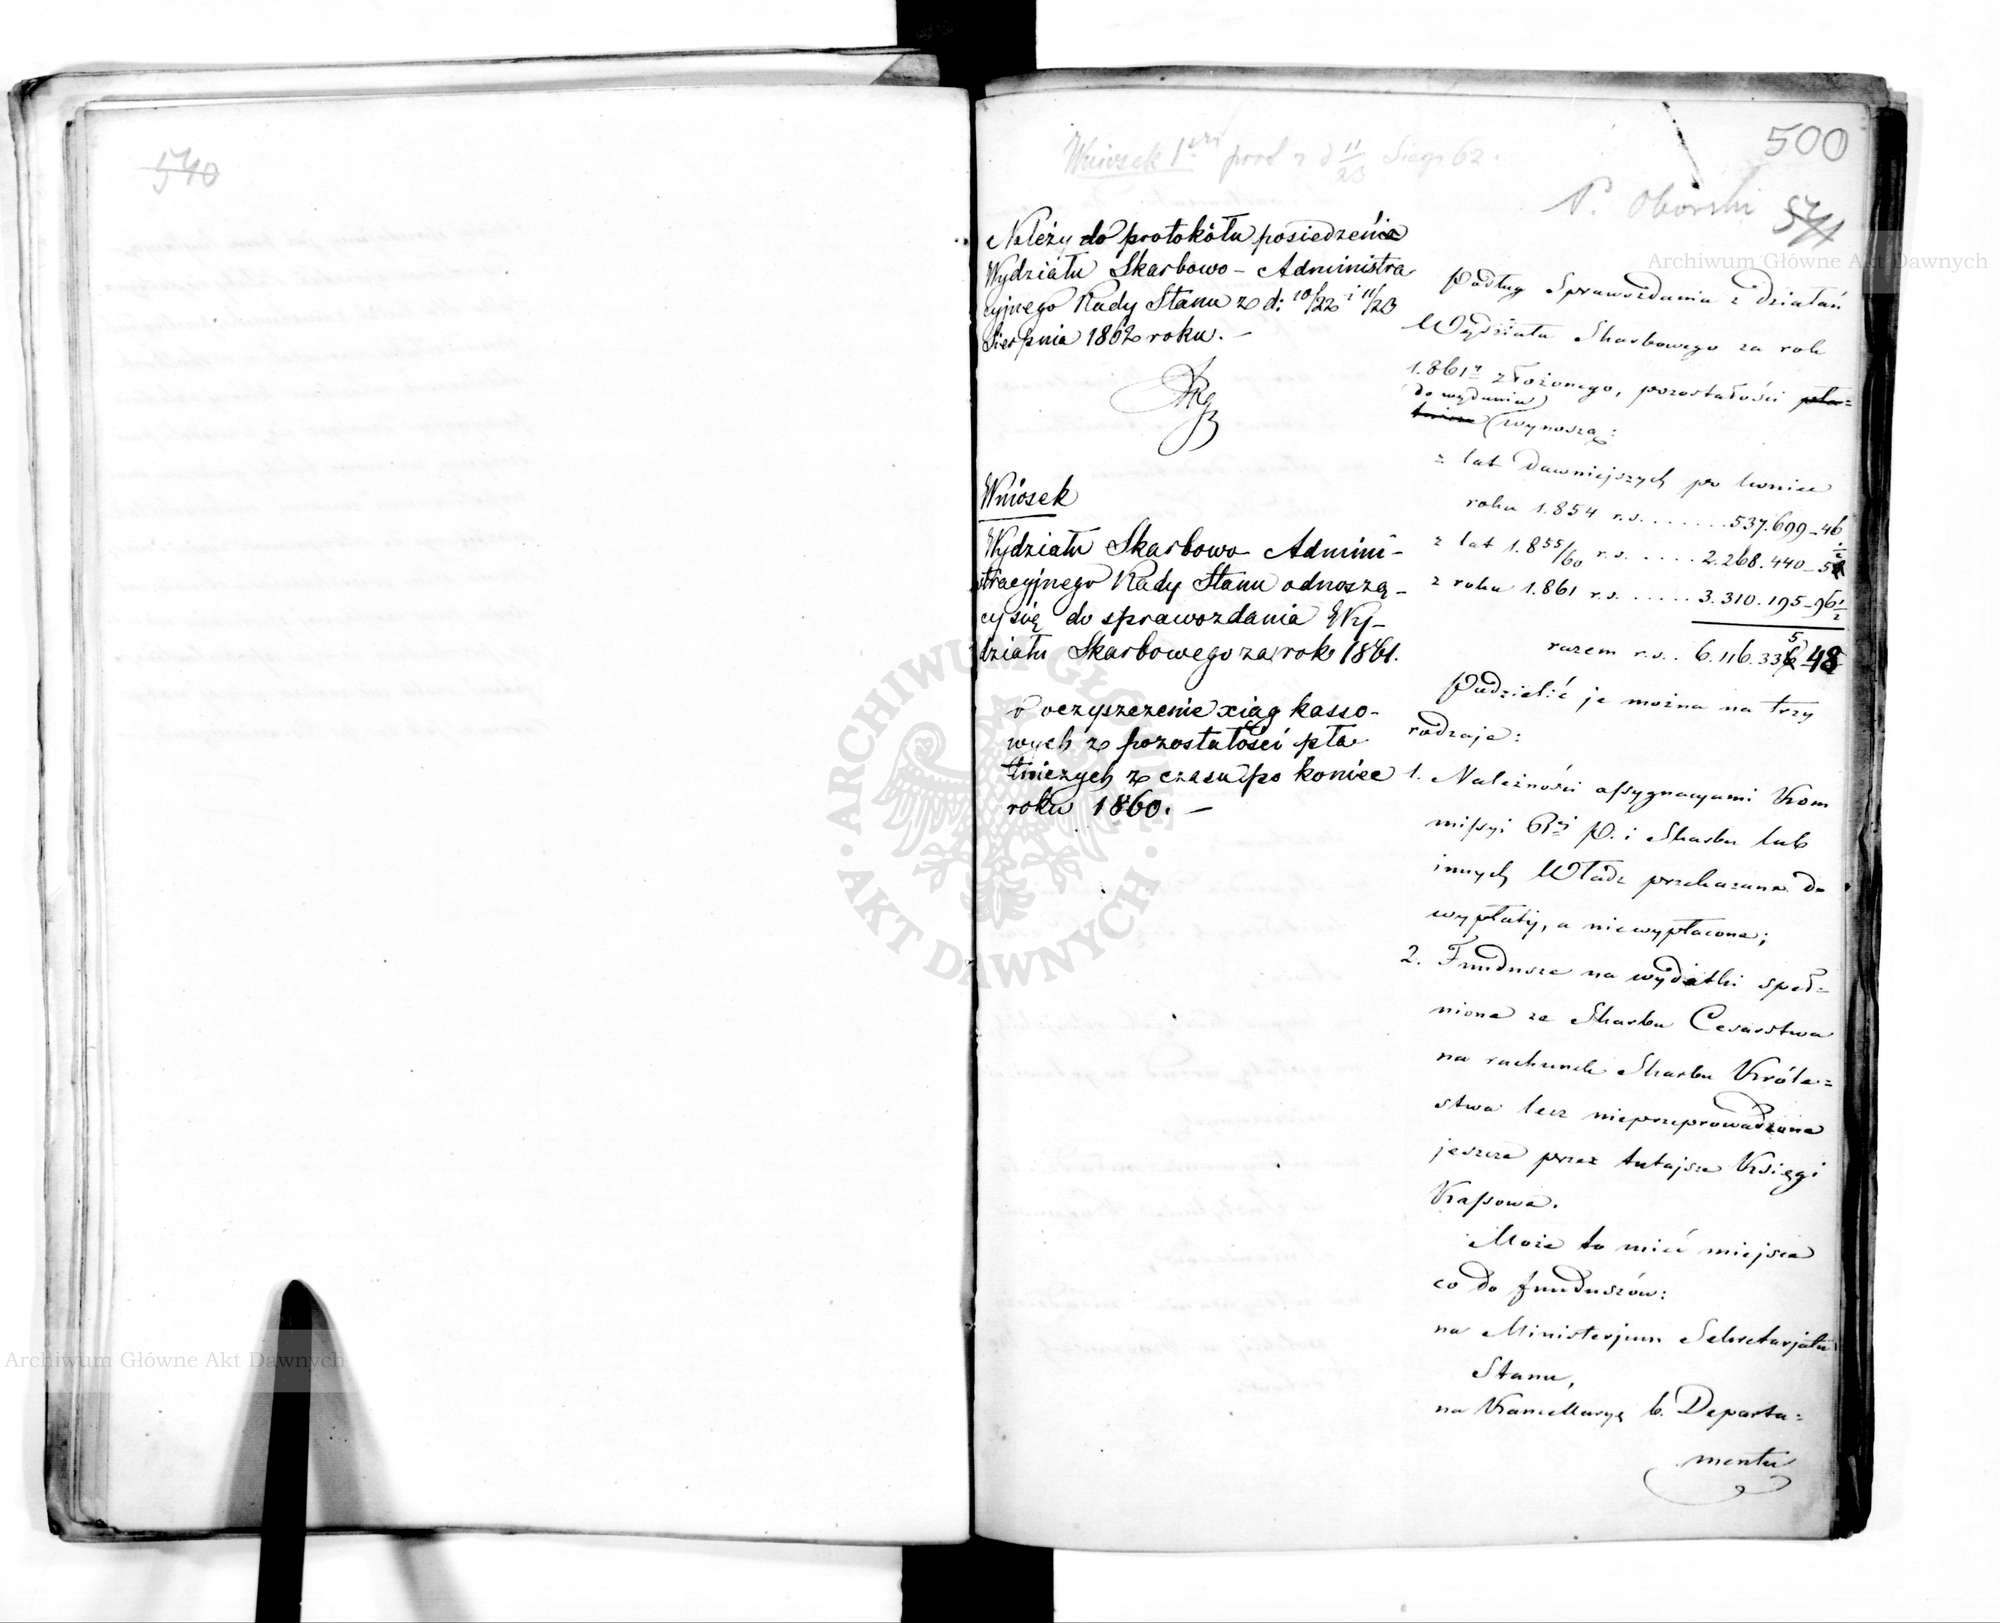 540
500
Wniosek 1szy prot z d 11/23 Sierp 62.
P. Oborski
541
Należy do protokółu posiedzenia
Wydziału Skarbowo - Administra
cyjnego Rady Stanu z d: 10/22 i 11/23
Sierpnia 1862 roku. -
Wniosek
Wydziału Skarbowo Admini-
stracyjnego Rady Stanu odnoszą-
cy się do sprawozdania Wy-
działu Skarbowego za rok 1861.
o oczyszczenie xiąg kasso-
wych z pozostałości pła
tniczych z czasu po koniec
roku 1860. -
Podług Sprawozdania z działań
Wydziału Skarbowego za rok
1.861 r złożonego, pozostałości płat=
do wydania
nicze wynoszą:
z lat dawniejszych po koniec
roku 1.854 r.s. . . . . . . . 537.699-46
z lat 1.855/60 r.s. . . . . . 2.268.440-5 1/2
z roku 1.861 r.s. . . . . . 3.310.195-96 1/2
razem r.s. . 6.116.335 48
Podzielić je można na trzy
rodzaje:
1. Należności assygnacyami Kom
missyi Rej P. i Skarbu lub
innych Władz przekazane do
wypłaty, a niewypłacone;
2. Fundusze na wydatki speł=
nione ze Skarbu Cesarstwa
na rachunek Skarbu Króle=
stwa lecz nieprzeprowadzone
jeszcze przez tutejsze Księgi
Kassowe.
Może to mieć miejsce
co do funduszów:
na Ministerjum Sekretarjatu
Stanu,
na Kancellaryę b. Departa=
mentu
Archiwum Główne Akt Dawnych
Archiwum Główne Akt Dawnych
ARCHIWUM GŁÓWNE
· AKT DAWNYCH ·